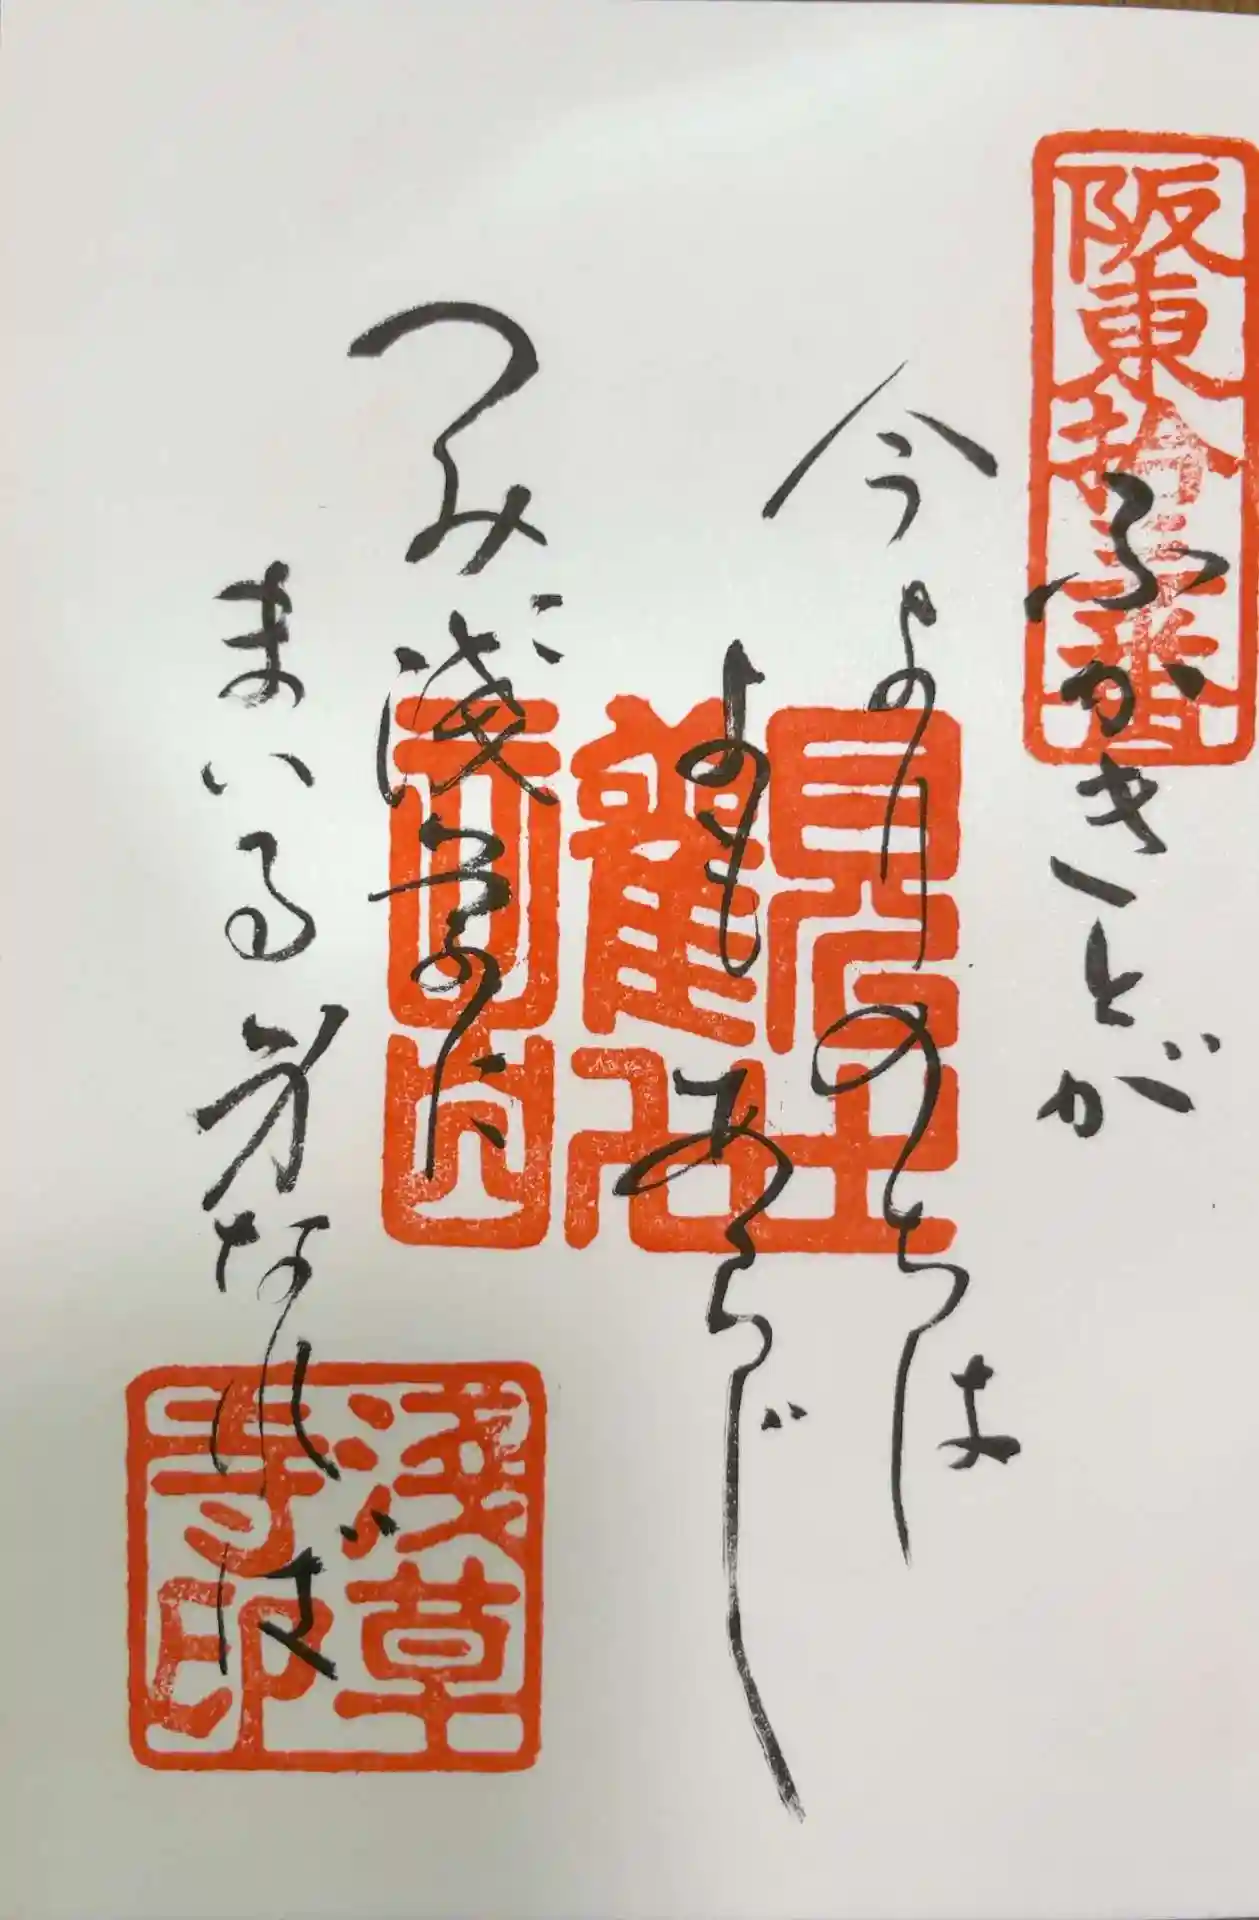 阪東拾三番
ふかきとが
今よりのちは
よもあらじ
つみ浅草に
まいる身なれば
淺草寺印